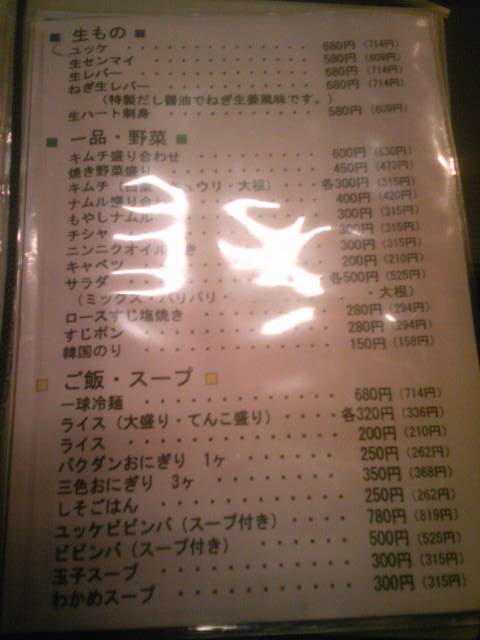 ■ 生もの ■
ユッケ ・・・・・・・・・・・・ 680円(714円)
生センマイ ・・・・・・・・・・ 580円(609円)
生レバー ・・・・・・・・・・・ 680円(714円)
ねぎ生レバー ・・・・・・・・・ 680円(714円)
(特製だし醤油でねぎ生姜風味です。)
生ハート刺身 ・・・・・・・・・ 580円(609円)
■ 一品・野菜 ■
キムチ盛り合わせ ・・・・・・・ 600円(630円)
焼き野菜盛り ・・・・・・・・・ 450円(473円)
キムチ(白菜・キュウリ・大根) 各300円(315円)
ナムル盛り合わ 400円(420円)
もやしナムル 300円(315円)
チシャ 300円(315円)
ニンニクオイル き 300円(315円)
キャベツ 200円(210円)
サラダ 各500円(525円)
(ミックス・パリパリ・ 大根)
ロースすじ塩焼き ・・・・・・・ 280円(294円)
すじポン ・・・・・・・・・・・ 280円(294円)
韓国のり ・・・・・・・・・・・ 150円(158円)
■ ご飯・スープ ■
一球冷麺 ・・・・・・・・・・・ 680円(714円)
ライス(大盛り・てんこ盛り) ・・・・ 各320円(336円)
ライス ・・・・・・・・・・・・ 200円(210円)
バクダンおにぎり 1ヶ ・・・・・・ 250円(262円)
三色おにぎり 3ヶ ・・・・・・・ 350円(368円)
しそごはん ・・・・・・・・・・ 250円(262円)
ユッケビビンバ(スープ付き) ・・・・ 780円(819円)
ビビンバ(スープ付き) ・・・・・・ 500円(525円)
玉子スープ ・・・・・・・・・・ 300円(315円)
わかめスープ ・・・・・・・・・ 300円(315円)